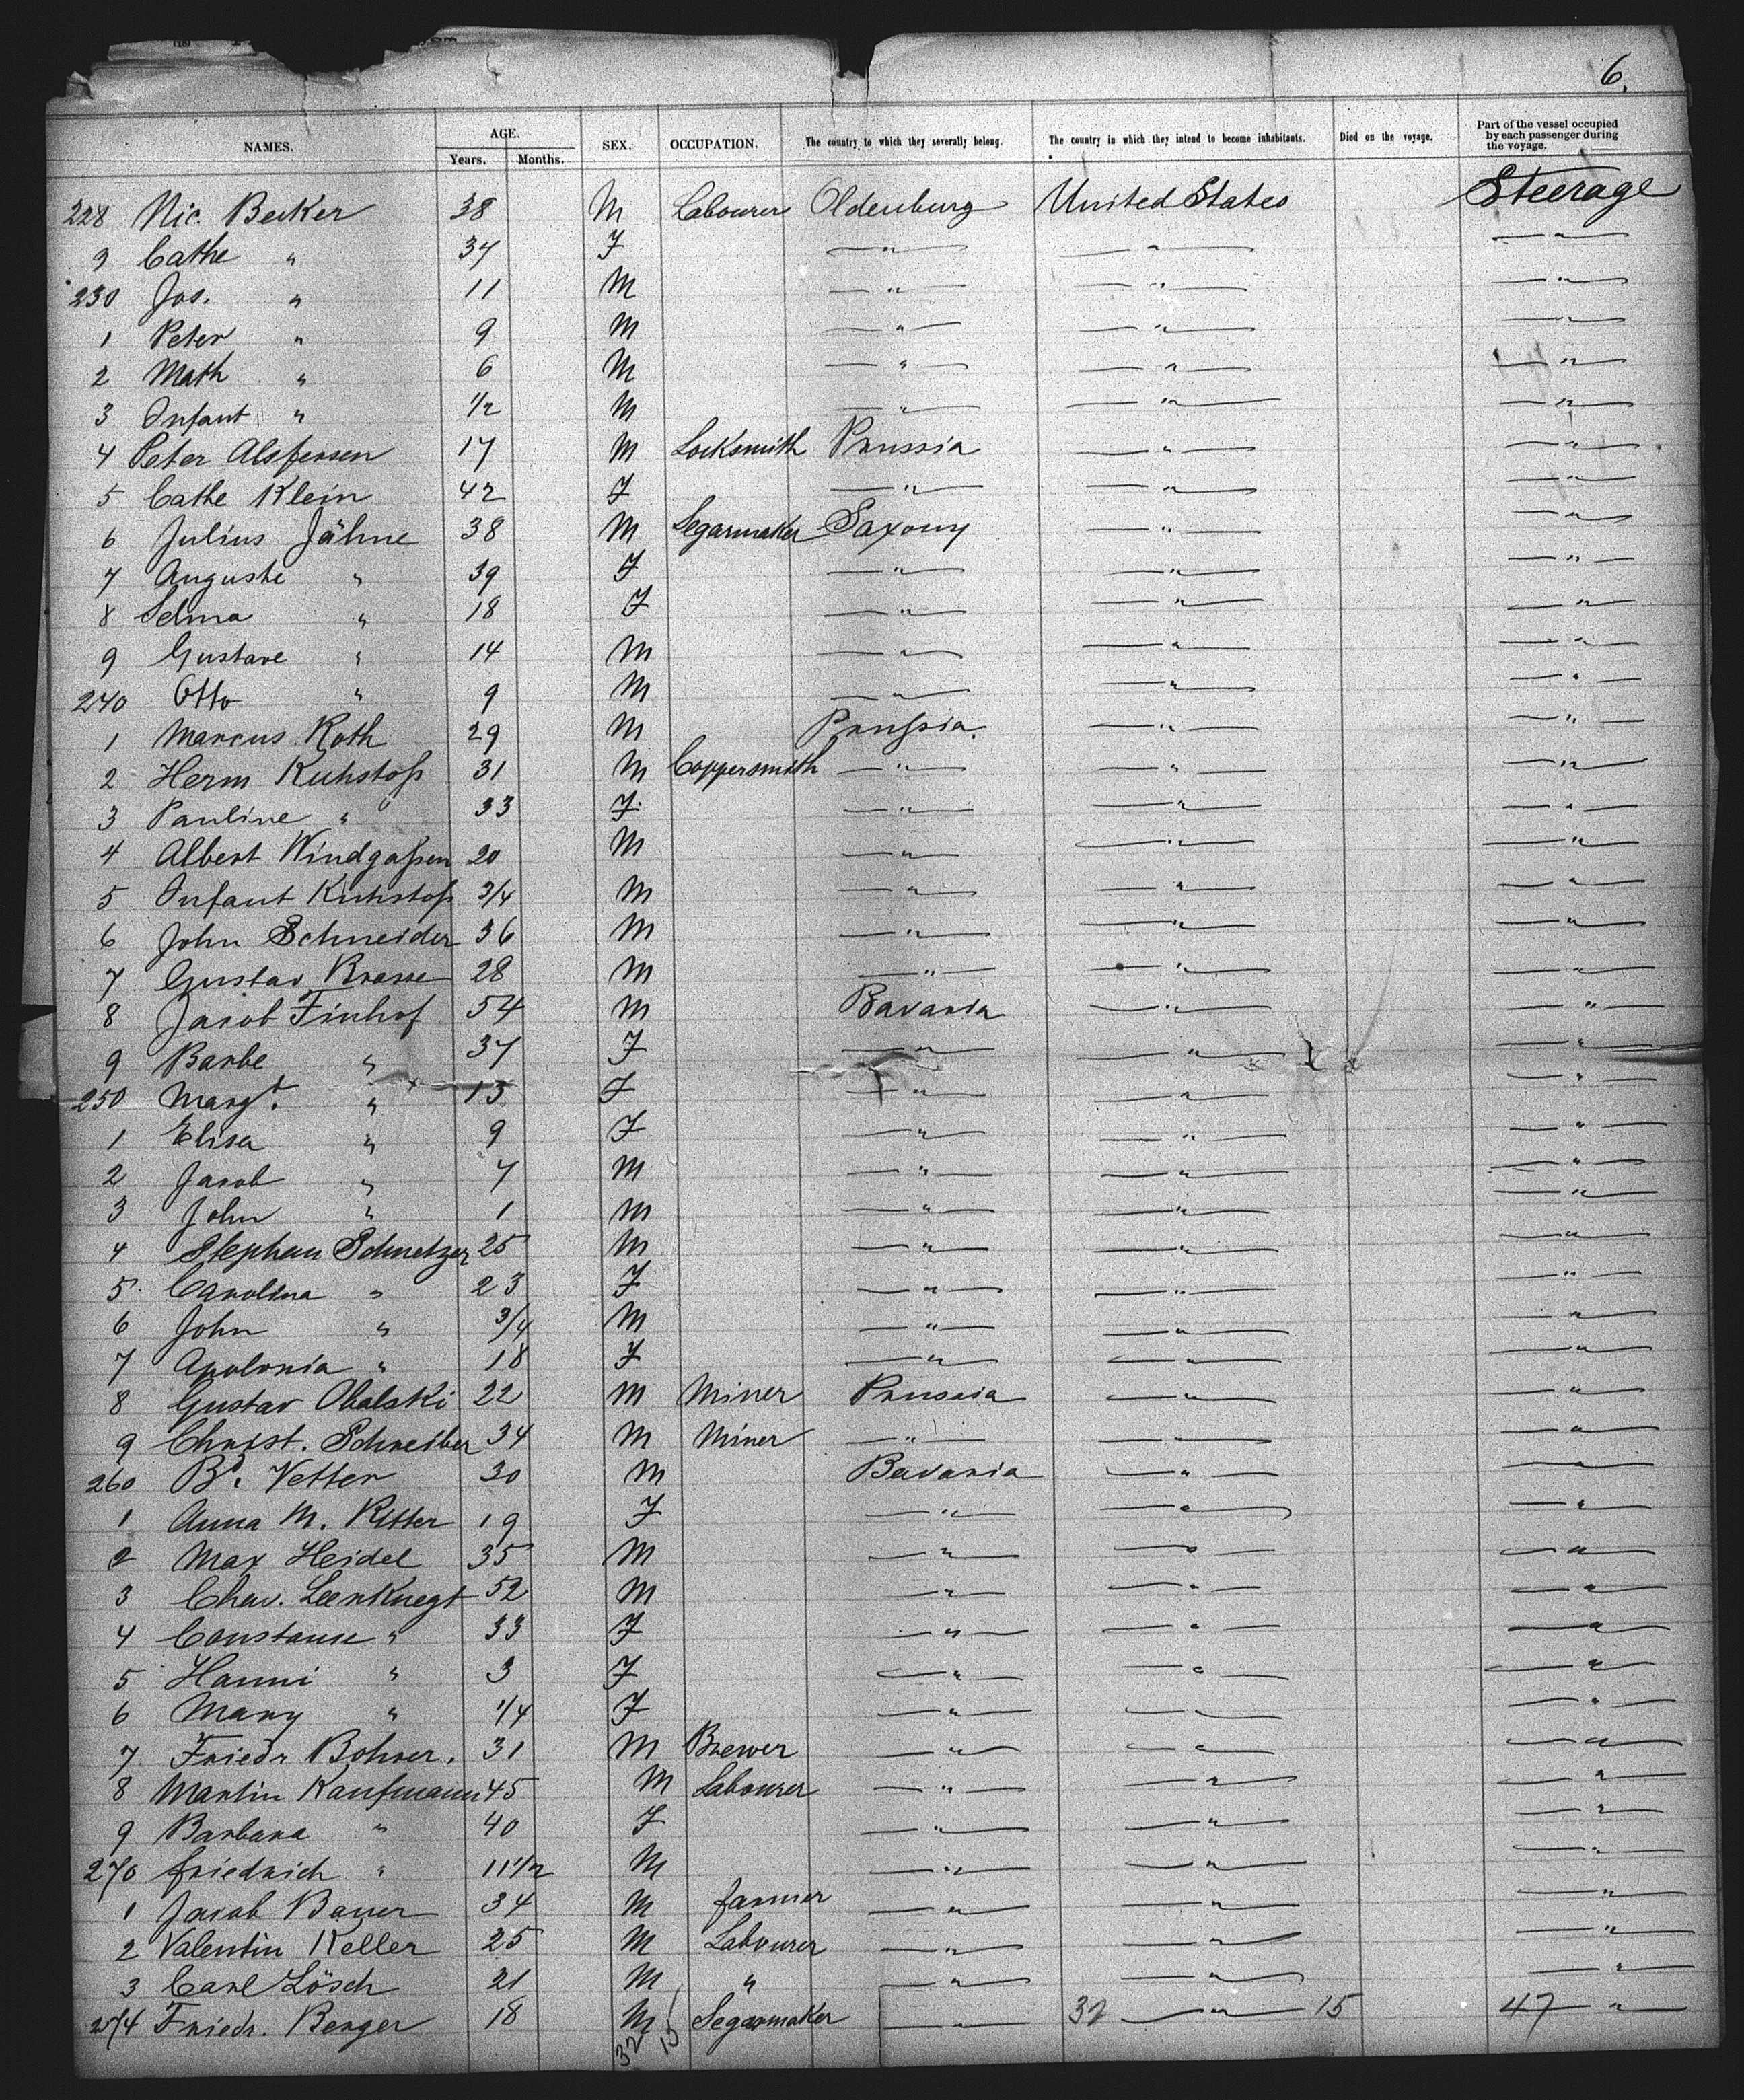 6.
NAMES. AGE. Years. Months. SEX. OCCUPATION. The country to which they severally belong. The country in which they intend to become inhabitants. Died on the voyage. Part of the vessel occupied by each passenger during the voyage.
228 Nic. Becker 38 M Labourer Oldenburg United States Steerage
9 Cathe " 37 F " " "
230 Jos. " 11 M " " "
1 Peter " 9 M " " "
2 Math " 6 M " " "
3 Infant " 1/2 M " " "
4 Peter 17 M Locksmith Prussia " "
5 Cathe Klein 42 F " " "
6 Julius Jähne 38 M Segarmaker Saxony " "
7 Auguste " 39 F " " "
8 Selma " 18 F " " "
9 Gustave " 14 M " " "
240 Otto " 9 M " " "
1 Marcus Roth 29 M Prussia. " "
2 Herm Kuhstoss 31 M Coppersmith " " "
3 Pauline " 33 F. " " "
4 Albert Windgassen 20 M " " "
5 Infant Kuhstoss 3/4 M " " "
6 John Schneider 36 M " " "
7 Gustav 28 M " " "
8 Jacob Finhof 54 M Bavaria " "
9 Barbe " 37 F " " "
250 Margt. " 13 F " " "
1 Elisa " 9 F " " "
2 Jacob " 7 M " " "
3 John " 1 M " " "
4 Stephan Schmetzer 25 M " " "
5 Carolina " 23 F " " "
6 John " 3/4 M " " "
7 Apolonia " 18 F " " "
8 Gustav Obalski 22 M Miner Prussia " "
9 Christ. Schreiber 34 M Miner " " "
260 Bd. Vetter 30 M Bavaria " "
1 Anna M. Ritter 19 F " " "
2 Max Heidel 35 M " " "
3 Leenknegt 52 M " " "
4 Constanse " 33 F " " "
5 Hanni " 3 F " " "
6 Mary " 1/4 F " " "
7 Friedr Bohrer. 31 M Brewer " " "
8 Martin Kaufmann 45 M Labourer " " "
9 Barbara " 40 F " " "
270 Friedrich " 11 1/2 M " " "
1 Jacob Bauer 34 M farmer " " "
2 Valentin Keller 25 M Labourer " " "
3 Carl Lösch 21 M " " " "
274 Friedr. Berger 18 M Segarmaker " 32 " 15 47 "
32 15